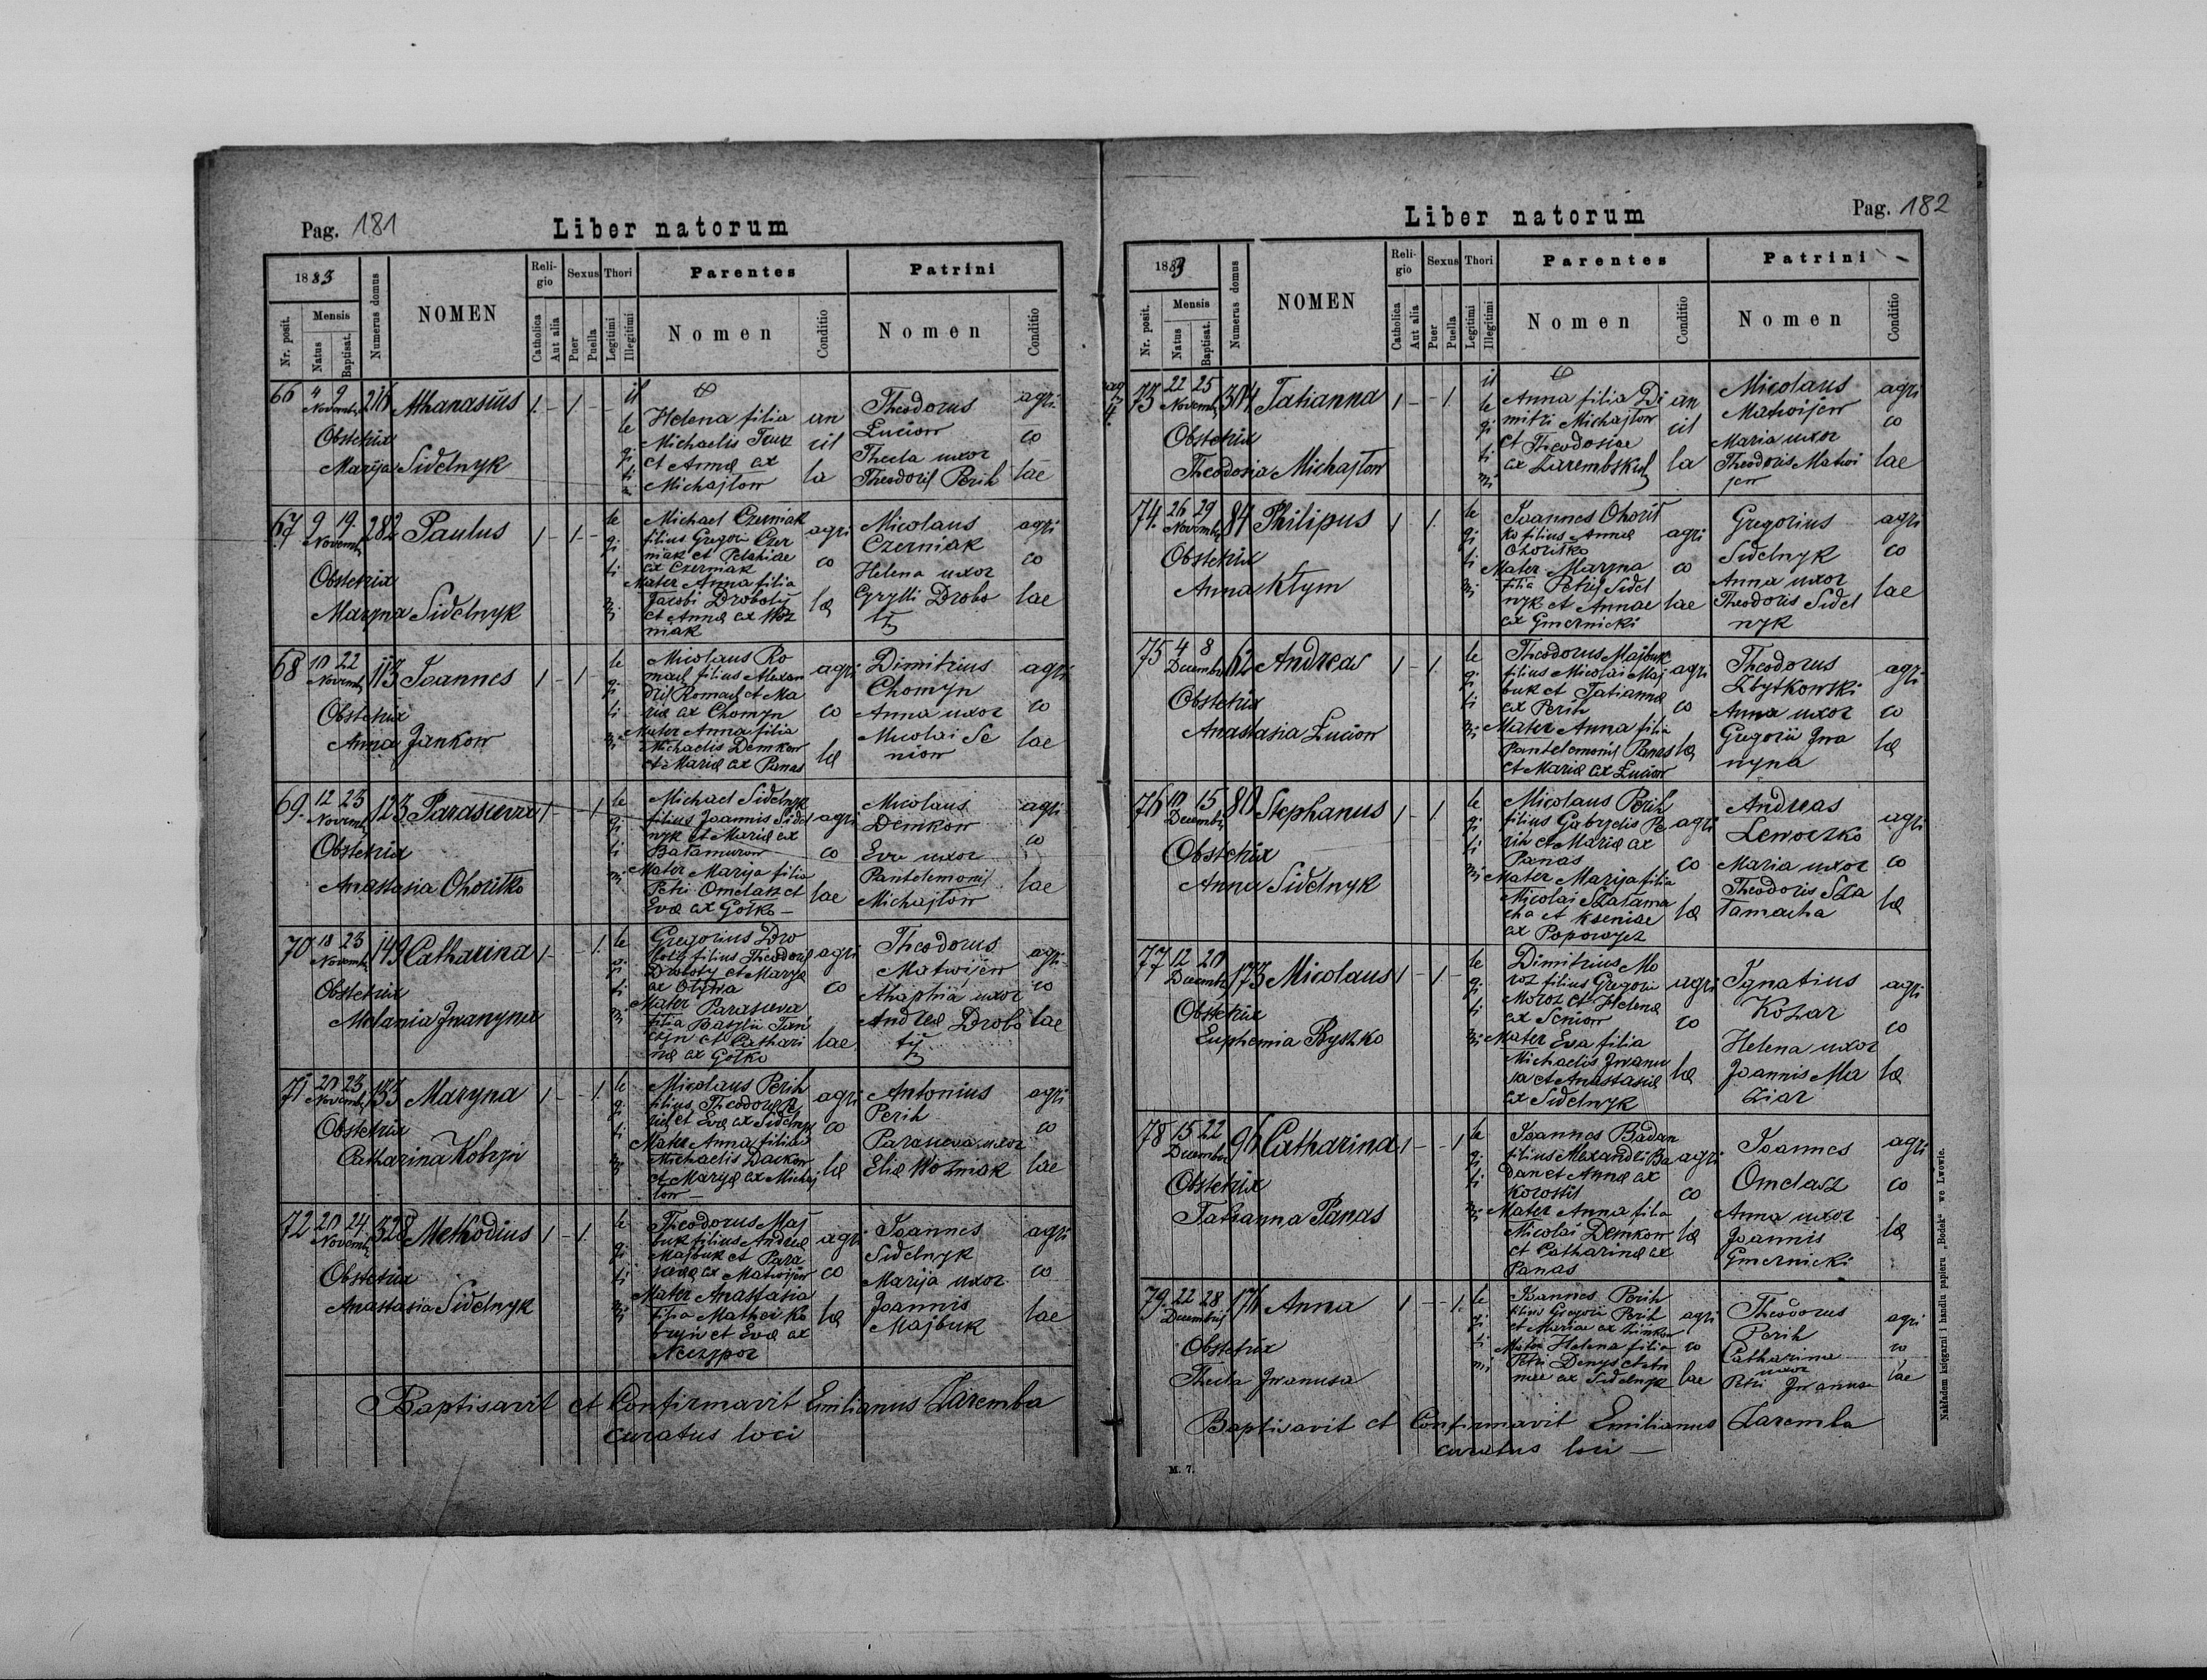 Pag. 181
Liber natorum
1883
Nr. posit.
Mensis
Natus
Baptisat.
Numerus domus
NOMEN
Religio
Catholica
Aut alia
Sexus
Puer
Puella
Thori
Legitimi
Illegitimi
Parentes
Nomen
Conditio
Patrini
Nomen
Conditio
66 4 9 Novemb 216 Athanasius 1 - 1 - -
Obstetrix
Marija Sidelnyk
il le gi ti mi
Helena filia
Michaelis
et Annæ ex
Michajlow
an cil la
Theodorus
Łuciow
Thecla uxor
Theodoris Perih
agri co lae
67 9 19 Novemb 282 Paulus 1 - 1 -
Obstetrix
Maryna Sidelnyk
le gi ti mi
Michael Czerniak
filius Gregorii Czer
niak et Pelahiae
ex Czerniak
Mater Anna filia
Jacobi Droboty
et Annæ ex Woz
niak
agri co læ
Nicolaus
Czerniak
Helena uxor
Cyrylli Drobo
ty
agri co lae
68 10 22 Novemb 113 Joannes 1 - 1 -
Obstetrix
Anna Jankow
le gi ti mi
Nicolaus Ro
man filius Alexan
dri Roman et Ma
riæ ex Chomyn
Mater Anna filia
Michaelis Demkow
et Mariæ ex Panas
agri co læ
Dimitrius
Chomyn
Anna uxor
Nicolai Se
niow
agri co lae
69. 12 23 Novemb 123 Parasceva 1 - - 1
Obstetrix
Anastasia Ohoritko
le gi ti mi
Michael Sidelnyk
filius Joannis Sidel
nyk et Mariæ ex
Bałamurow
Mater Marija filia
Petri Omelasz et
Evæ ex Gołko -
agri co lae
Nicolaus
Demkow
Eva uxor
Pantelemonis
Michajłow
agri co lae
70 18 23 Novemb 149 Catharina 1 - - 1.
Obstetrix
Melania Jwanyna
le gi ti mi
Gregorius Dro
boty filius Theodoris
Droboty et Maryæ
ex
Mater Parasceva
filia Basylii
et Cathari
næ ex Gołko
agri co lae
Theodorus
Matwijew
Ahaphia uxor
Andreæ Drobo
ty
agri co lae
71 20 23 Novemb 133 Maryna 1 - - 1.
Obstetrix
Catharina Kobryn
le gi ti mi
Nicolaus Perih
filius Theodoris Pe
rih et Evæ ex Sidelnyk
Mater Anna filia
Michaelis Dackow
et Maryæ ex Michaj
low -
agri co læ
Antonius
Perih
Parasceva uxor
Eliæ Wozniak
agri co lae
72 20 24 Novemb 328 Methodius 1 - 1.
Obstetrix
Anastasia Sidelnyk
le gi ti mi
Theodorus Maj
buk filius Andreæ
Majbuk et Para
scevæ ex Matwijew
Mater Anastasia
filia Mathei Ko
bryn et Evæ ex
Neczypor
agri co læ
Joannes
Sidelnyk
Marija uxor
Joannis
Majbuk
agri co lae
Baptisavit et Confirmavit Emilianus Zaremba
curatus loci
Pag. 182
Liber natorum
1883
Nr. posit.
Mensis
Natus
Baptisat.
Numerus domus
NOMEN
Religio
Catholica
Aut alia
Sexus
Puer
Puella
Thori
Legitimi
Illegitimi
Parentes
Nomen
Conditio
Patrini
Nomen
Conditio
73 22 25 Novemb 304 Tatianna 1 - - 1.
Obstetrix
Theodosia Michajłow
il le gi ti mi
Anna filia Di
mitri Michajłow
et Theodosiae
ex Zarembskich
an cil la
Nicolaus
Matwijew
Maria uxor
Theodoris Matwi
jew
agri co lae
74. 26 29 Novemb 84 Philipus 1 1.
Obstetrix
Anna Kłym
le gi ti mi
Joannes Ohorit
ko filius Annæ
Ohoritko
Mater Maryna
filia Petri Sidel
nyk et Annae
ex Gmernicki
agri co lae
Gregorius
Sidelnyk
Anna uxor
Theodoris Sidel
nyk
agri co lae
75 4 8 Decembr 62 Andreas 1 - 1.
Obstetrix
Anastasia Łuciow
le gi ti mi
Theodorus Majbuk
filius Nicolai Maj
buk et Tatiannæ
ex Perih
Mater Anna filia
Pantelemonis Panas
et Mariæ ex Łuciow
agri co læ
Theodorus
Zbytkowski
Anna uxor
Gregorii Jwa
nyna
agri co læ
76 10 15 Decembr 80 Stephanus 1 - 1
Obstetrix
Anna Sidelnyk
le gi ti mi
Nicolaus Perih
filius Gabryelis Pe
rih et Mariæ ex
Panas
Mater Marija filia
Nicolai Szalama
cha et Kseniae
ex Popowycz
agri co læ
Andreas
Lewoczko
Maria uxor
Theodoris Sza
łamacha
agri co læ
77 12 20 Decembr 173 Nicolaus 1 - 1 -
Obstetrix
Euphemia Ryszko
le gi ti mi
Dimitrius Mo
roz filius Gregorii
Moroz et Helenæ
ex Seniow
Mater Eva filia
Michaelis Jwanu
sa et Anastasiæ
ex Sidelnyk
agri co læ
Ignatius
Kozar
Helena uxor
Joannis Ma
ziar
agri co læ
78 15 22 Decembr 96 Catharina 1 - - 1
Obstetrix
Tatianna Panas
le gi ti mi
Joannes Badan
filius Alexandri Ba
dan et Annæ ex
Korostil
Mater Anna filia
Nicolai Demkow
et Catharinæ ex
Panas
agri co læ
Joannes
Omelasz
Anna uxor
Joannis
Gmernicki
agri co læ
79. 22 28 Decembris 176 Anna 1 - - 1.
Obstetrix
Thecla Jwanusa
le gi ti mi
Joannes Perih
filius Gregorii Perih
et Mariae ex
Mater Helena filia
Petri Denys et An
nae ex Sidelnyk
agri co lae
Theodorus
Perih
Catharina
uxor
Petri Jwanusa
agri co lae
Baptisavit et Confirmavit Emilianus Zaremba
curatus loci -
M. 7.
Nakładem księgarni i handlu papieru „Bodek“ we Lwowie.